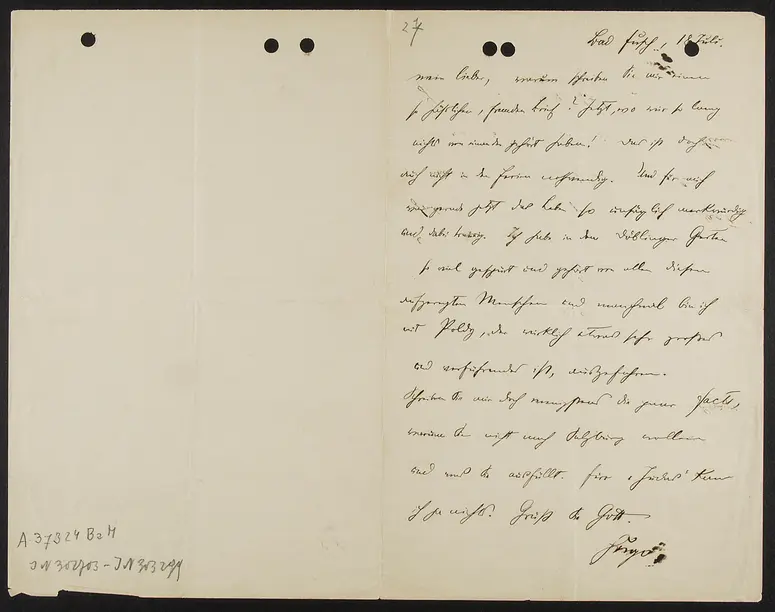 27
Bad Fusch, 18 Juli.
mein lieber, warum schreiben Sie mir einen
so häßlichen, fremden Brief? Jetzt, wo wir so lang
nichts von einander gehört haben! Das ist doch
auch nicht in den Ferien nothwendig. Und für mich
war gerade jetzt das Leben so unsäglich merkwürdig
und dabei traurig. Ich habe in dem Döblinger Garten
so viel gespürt und gehört von allen diesen
aufgeregten Menschen und manchmal bin ich
mit Poldy, der wirklich etwas sehr großes
und verführendes ist, ausgefahren.
Schreiben Sie mir doch wenigstens die paar facts,
warum Sie nicht nach Salzburg wollen
und was Sie ausfüllt. Fürs "Juda" kann
ich ja nichts. Grüß Sie Gott.
Hugo
A 37324 BaM
IN 302703 - IN 303294